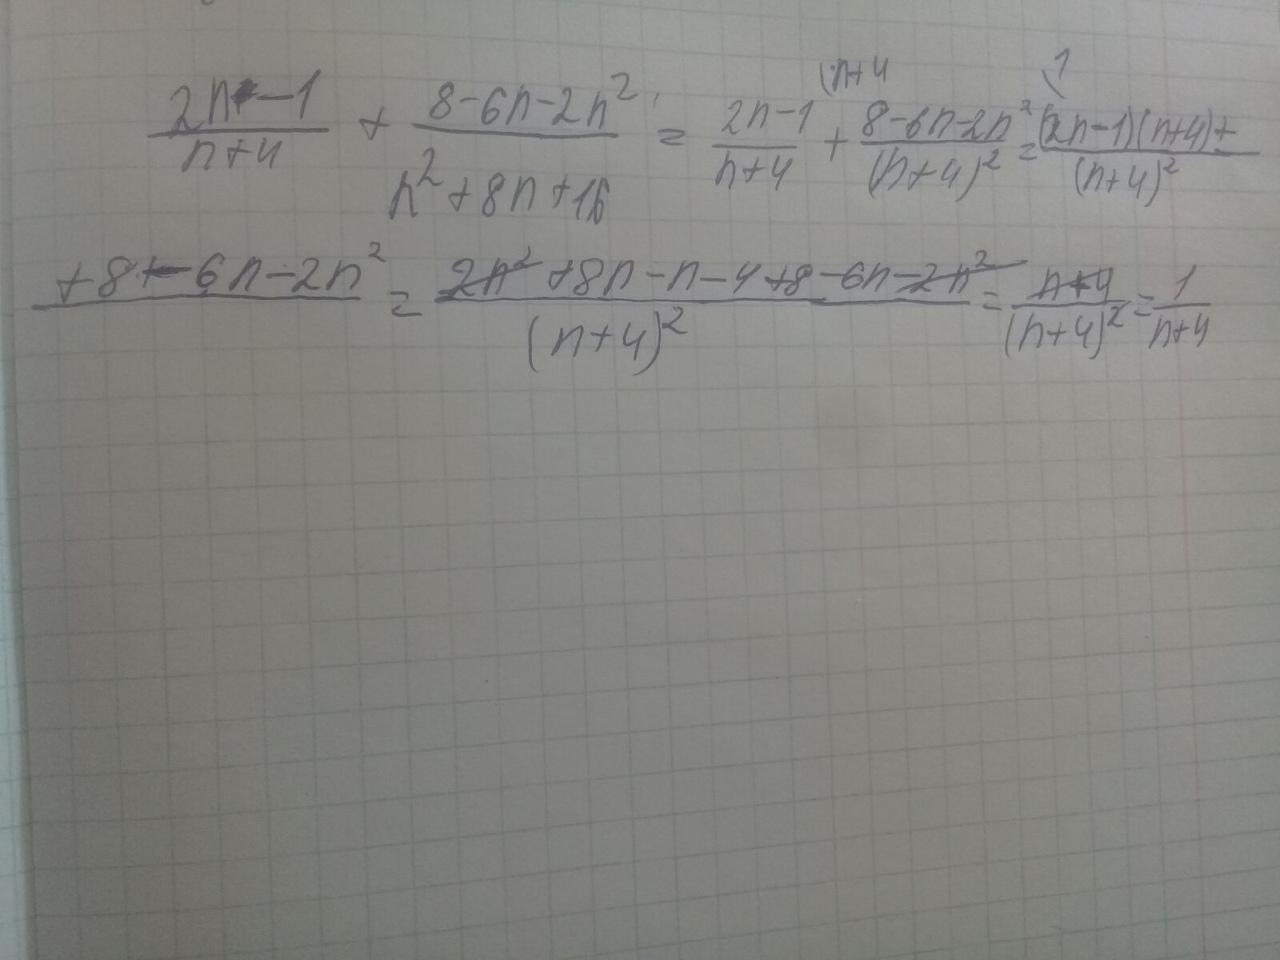 (2n-1)/(n+4) + (8-6n-2n²)/(n²+8n+16) = (2n-1)/(n+4) (n+4 + (8-6n-2n²)/(n+4)² (1 = (2n-1)(n+4)+/(n+4)²
+8-6n-2n² = (2n²+8n-n-4+8-6n-2n²)/(n+4)² = (n+4)/(n+4)² = 1/(n+4)